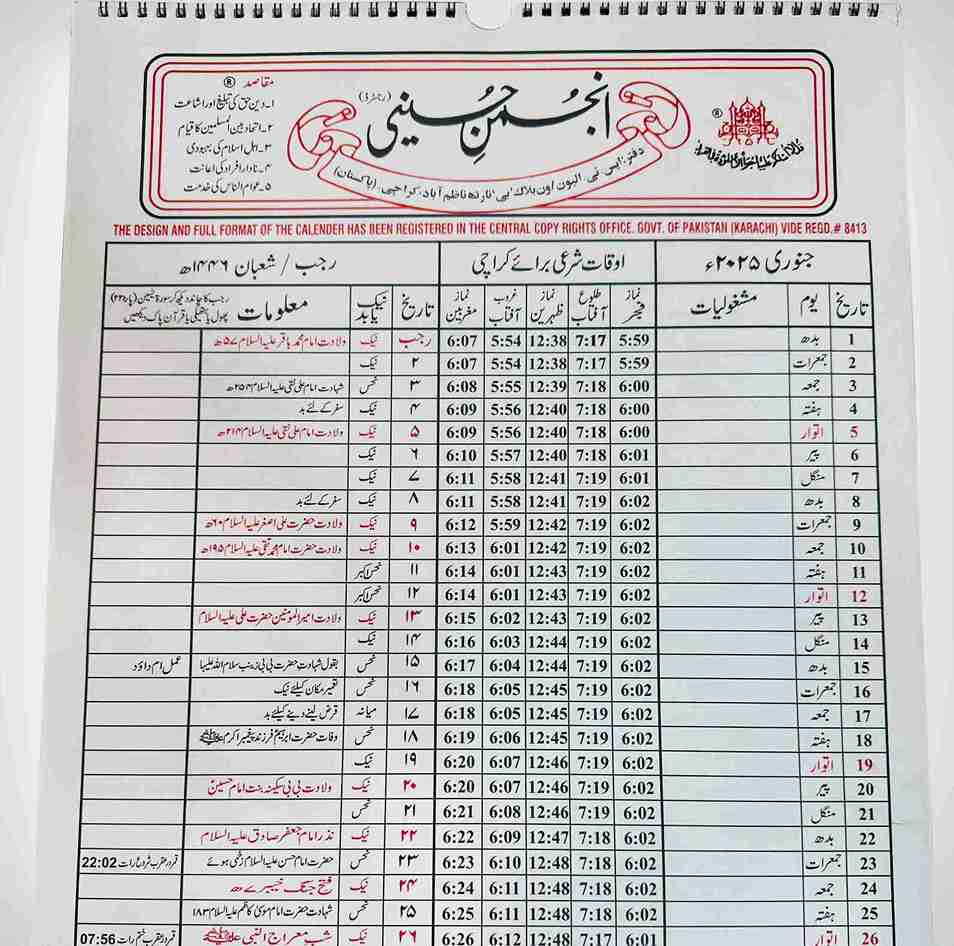 مقاصد ®
۱۔ دین حق کی تبلیغ اور اشاعت
۲۔ اتحاد بین المسلمین کا قیام
۳۔ اہل اسلام کی بہبودی
۴۔ نادار افراد کی اعانت
۵۔ عوام الناس کی خدمت
انجمن حسینی (رجسٹرڈ)
دفتر: ایس ٹی۔ الیون اون بلاک 'بی' نارتھ ناظم آباد، کراچی۔ (پاکستان)
®
THE DESIGN AND FULL FORMAT OF THE CALENDER HAS BEEN REGISTERED IN THE CENTRAL COPY RIGHTS OFFICE. GOVT. OF PAKISTAN (KARACHI) VIDE REGD.# 8413
جنوری ۲۰۲۵ء اوقات شرعی برائے کراچی رجب / شعبان ۱۴۴۶ھ
تاریخ یوم مشغولیات نماز فجر طلوع آفتاب نماز ظہرین غروب آفتاب نماز مغربین تاریخ نیک یا بد معلومات رجب کا چاند دیکھ کر سورۃ یٰسین (پارہ ۲۲) پھول یا پتی یا قرآن پاک دیکھیں
1 بدھ 5:59 7:17 12:38 5:54 6:07 رجب نیک ولادت امام محمد باقر علیہ السلام ۵۷ھ
2 جمعرات 5:59 7:17 12:39 5:54 6:07 ۲ نیک
3 جمعہ 6:00 7:18 12:39 5:55 6:08 ۳ نحس شہادت امام علی نقی علیہ السلام ۲۵۴ھ
4 ہفتہ 6:00 7:18 12:40 5:56 6:09 ۴ نیک سفر کے لئے بد
5 اتوار 6:00 7:18 12:40 5:56 6:09 ۵ نیک ولادت امام علی نقی علیہ السلام ۲۱۴ھ
6 پیر 6:01 7:18 12:40 5:57 6:10 ۶ نیک
7 منگل 6:01 7:19 12:41 5:58 6:11 ۷ نیک
8 بدھ 6:02 7:19 12:41 5:58 6:11 ۸ نیک سفر کے لئے بد
9 جمعرات 6:02 7:19 12:42 5:59 6:12 ۹ نیک ولادت حضرت علی اصغر علیہ السلام ۶۰ھ
10 جمعہ 6:02 7:19 12:42 6:01 6:13 ۱۰ نیک ولادت حضرت امام محمد تقی علیہ السلام ۱۹۵ھ
11 ہفتہ 6:02 7:19 12:43 6:01 6:14 ۱۱ نحس اکبر
12 اتوار 6:02 7:19 12:43 6:01 6:14 ۱۲ نحس اکبر
13 پیر 6:02 7:19 12:43 6:02 6:15 ۱۳ نیک ولادت امیر المومنین حضرت علی علیہ السلام
14 منگل 6:02 7:19 12:44 6:03 6:16 ۱۴ نیک
15 بدھ 6:02 7:19 12:44 6:04 6:17 ۱۵ نحس بقول شہادت حضرت بی بی زینب سلام اللہ علیہا عمل ام داؤد
16 جمعرات 6:02 7:19 12:45 6:05 6:18 ۱۶ نحس تعمیر مکان کیلئے نیک
17 جمعہ 6:02 7:19 12:45 6:05 6:18 ۱۷ میانہ قرض لینے دینے کیلئے بد
18 ہفتہ 6:02 7:19 12:45 6:06 6:19 ۱۸ نحس وفات حضرت ابراہیم فرزند پیغمبر اکرم ﷺ
19 اتوار 6:02 7:19 12:46 6:07 6:20 ۱۹ نیک
20 پیر 6:02 7:19 12:46 6:07 6:20 ۲۰ نیک ولادت بی بی سکینہ بنت امام حسین
21 منگل 6:02 7:19 12:46 6:08 6:21 ۲۱ نحس
22 بدھ 6:02 7:18 12:47 6:09 6:22 ۲۲ نیک نذر امام جعفر صادق علیہ السلام
23 جمعرات 6:02 7:18 12:48 6:10 6:23 ۲۳ نحس حضرت امام حسن علیہ السلام زخمی ہوئے قمر در عقرب شروع رات 22:02
24 جمعہ 6:02 7:18 12:48 6:11 6:24 ۲۴ نیک فتح جنگ خیبر ۷ھ
25 ہفتہ 6:01 7:18 12:48 6:11 6:25 ۲۵ نحس شہادت حضرت امام موسیٰ کاظم علیہ السلام ۱۸۳
26 اتوار 6:01 7:17 12:48 6:12 6:26 ۲۶ نیک شب معراج النبی ﷺ قمر در عقرب ختم رات 07:56